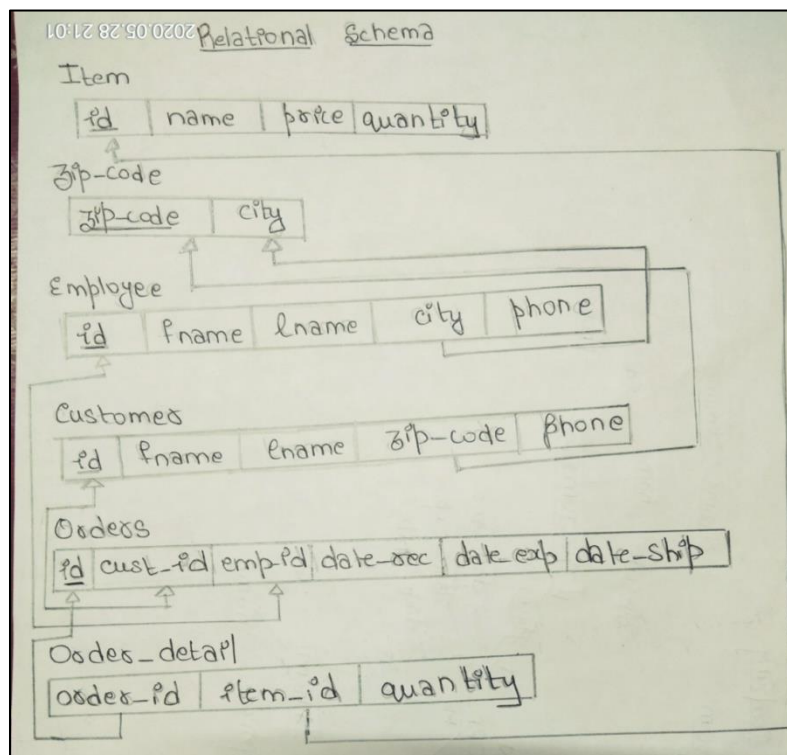 2020.05.28 21:01
Relational Schema
Item
id name price quantity
Zip-code
zip-code city
Employee
id fname lname city phone
Customer
id fname lname zip-code phone
Orders
id cust_id emp-id date-rec date_exp date-ship
Order_detail
order-id item_id quantity